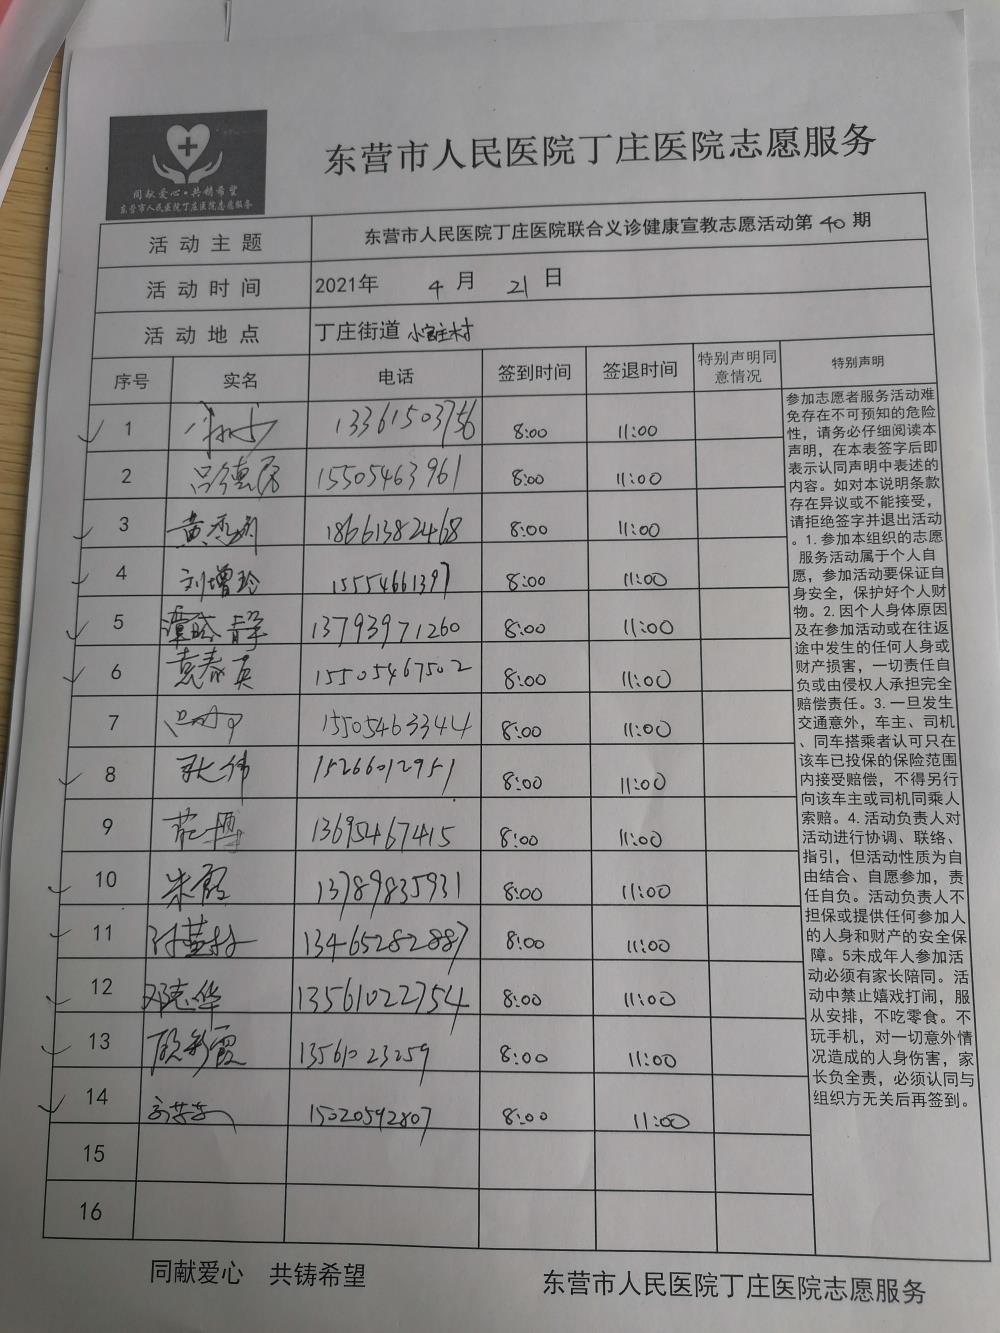 同献爱心·共铸希望
东营市人民医院丁庄医院志愿服务
东营市人民医院丁庄医院志愿服务
活动主题 东营市人民医院丁庄医院联合义诊健康宣教志愿活动第40期
活动时间 2021年 4月 21日
活动地点 丁庄街道
序号 实名 电话 签到时间 签退时间 特别声明同意情况 特别声明
1 13361503756 8:00 11:00
2 吕德居 15505463961 8:00 11:00
3 18661382468 8:00 11:00
4 刘增玲 15554661397 8:00 11:00
5 13793971260 8:00 11:00
6 袁春英 15505467502 8:00 11:00
7 15505463344 8:00 11:00
8 张伟 15266012951 8:00 11:00
9 范博 13695467415 8:00 11:00
10 朱霞 13789835931 8:00 11:00
11 13465282887 8:00 11:00
12 邓志华 13561022754 8:00 11:00
13 顾彩霞 13561023259 8:00 11:00
14 15020592807 8:00 11:00
15
16
参加志愿者服务活动难
免存在不可预知的危险
性，请务必仔细阅读本
声明，在本表签字后即
表示认同声明中表述的
内容。如对本说明条款
存在异议或不能接受，
请拒绝签字并退出活动
。1.参加本组织的志愿
服务活动属于个人自
愿，参加活动要保证自
身安全，保护好个人财
物。2.因个人身体原因
及在参加活动或在往返
途中发生的任何人身或
财产损害，一切责任自
负或由侵权人承担完全
赔偿责任。3.一旦发生
交通意外，车主、司机
、同车搭乘者认可只在
该车已投保的保险范围
内接受赔偿，不得另行
向该车主或司机同乘人
索赔。4.活动负责人对
活动进行协调、联络、
指引，但活动性质为自
由结合、自愿参加，责
任自负。活动负责人不
担保或提供任何参加人
的人身和财产的安全保
障。5未成年人参加活
动必须有家长陪同。活
动中禁止嬉戏打闹，服
从安排，不吃零食。不
玩手机，对一切意外情
况造成的人身伤害，家
长负全责，必须认同与
组织方无关后再签到。
同献爱心 共铸希望
东营市人民医院丁庄医院志愿服务